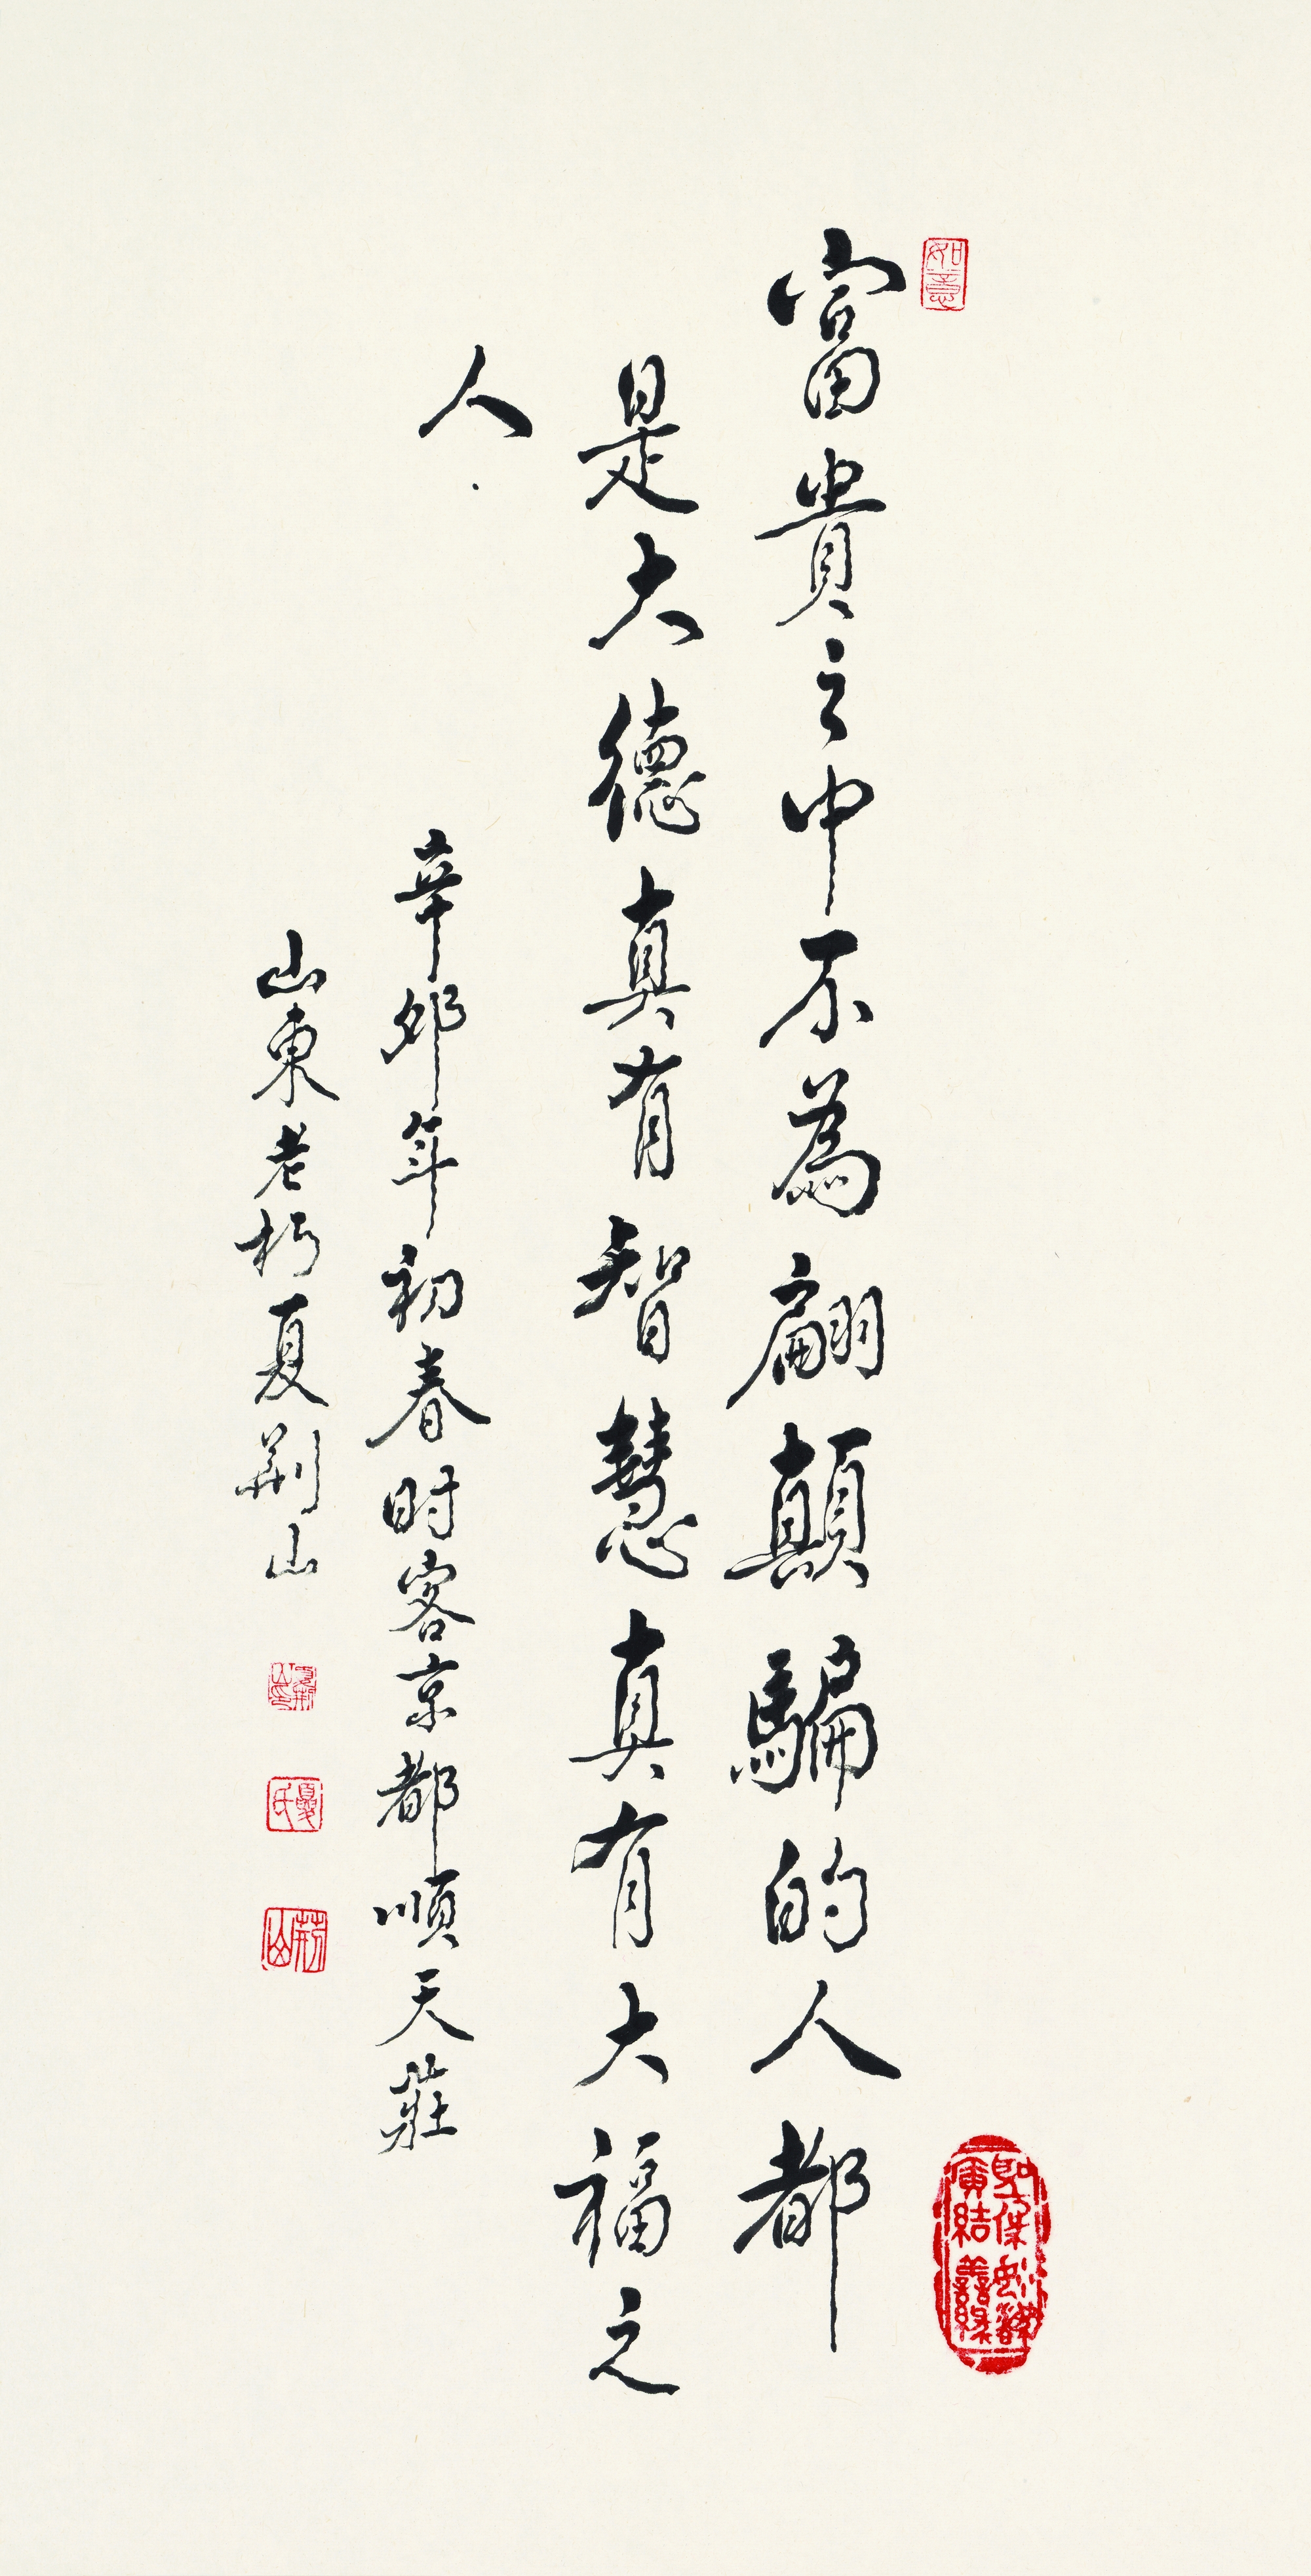 富貴之中不為翩顛騙的人都
是大德真有智慧真有大福之
人.
辛卯年初春时客京都順天莊
山東老朽夏荆山
如意
夏氏
荊山